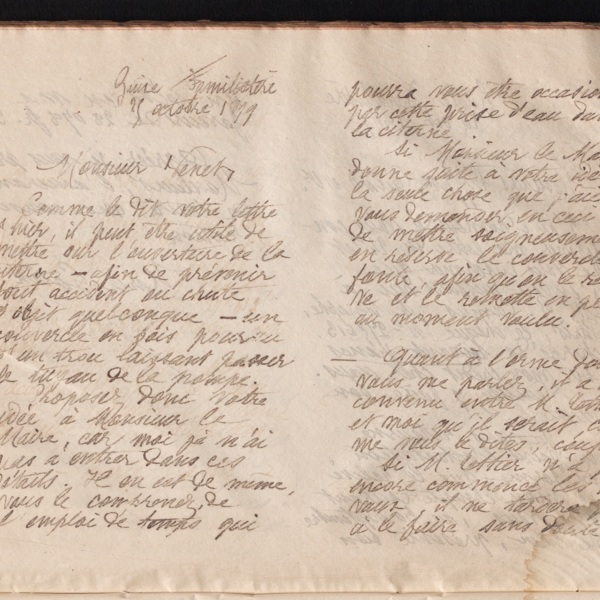 Guise Familistère
25 octobre 1899
Monsieur Venet,
Comme le dit votre lettre
hier, il peut être utile de
mettre sur l'ouverture de la
citerne – afin de prévenir
tout accident ou chute
d'objet quelconque – un
couvercle en bois pourvu
d'un trou laissant passer
le tuyau de la pompe.
Proposez donc votre
idée à Monsieur le
Maire, car moi je n'ai
pas à entrer dans ces
détails. Il en est de même,
vous le comprenez, de
l'emploi de temps qui
pourra vous être occasion
par cette prise d'eau dan
la citerne.
Si Monsieur le Ma
donne suite à votre idée
la seule chose que j'aie
vous demander en ceci
de mettre soigneuseme
en réserve le couvercle
fonte, afin qu'on le
et le remette en pl
au moment voulu.
— Quant à l'orme do
vous me parlez, il a
convenu entre M.
et moi qu'il serait
me vous le dites,
Si M. Lettier n'a
encore commencé
vous, il ne tardera
à le faire sans doute